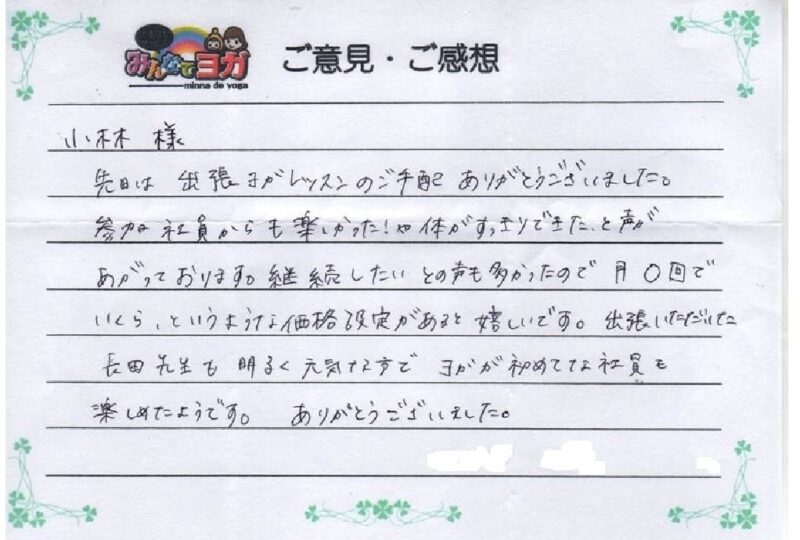 みんなでヨガ
minna de yoga
ご意見・ご感想
小林 様
先日は 出張ヨガレッスンのご手配 ありがとうございました。
参加 社員からも楽しかった!や体がすっきりできた、と声が
あがっております。継続したい との声も多かったので 月〇回で
いくら、というような価格設定があると嬉しいです。 出張いただいた
長田先生も 明るく元気な方で ヨガが初めてな社員も
楽しめたようです。 ありがとうございました。